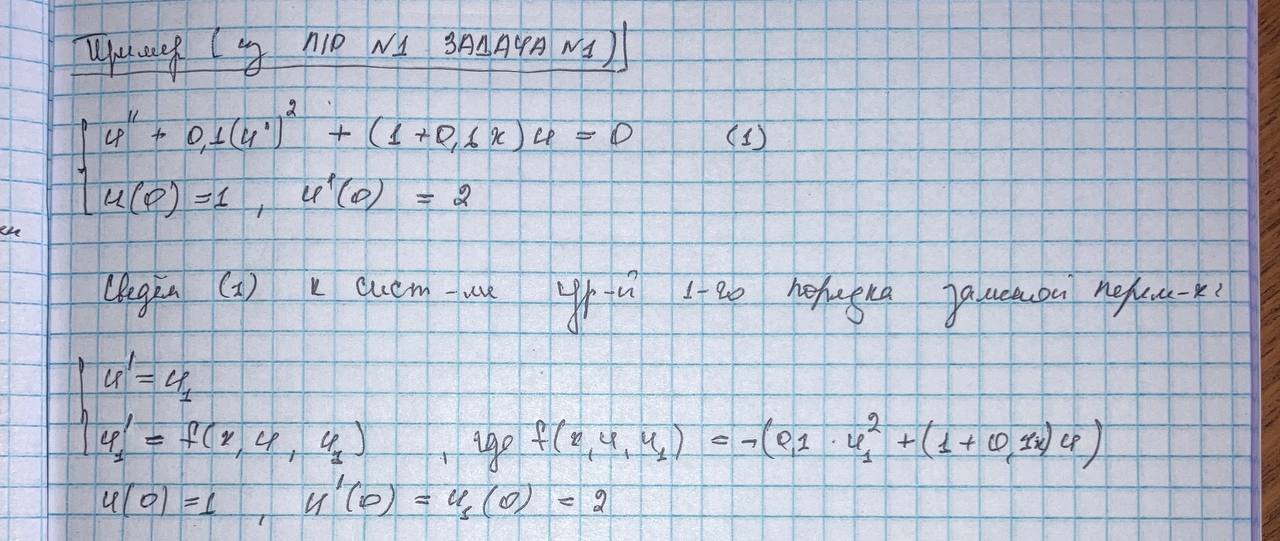 Пример (из П/Р №1 ЗАДАЧА №1)
u'' + 0,1(u')² + (1+0,1x)u = 0 (1)
u(0) = 1, u'(0) = 2
Сведём (1) к сист-ме ур-й 1-го порядка заменой перем-х:
u' = u₁
u₁' = f(x, u, u₁), где f(x, u, u₁) = -(0,1 · u₁² + (1+0,1x)u)
u(0) = 1, u'(0) = u₁(0) = 2